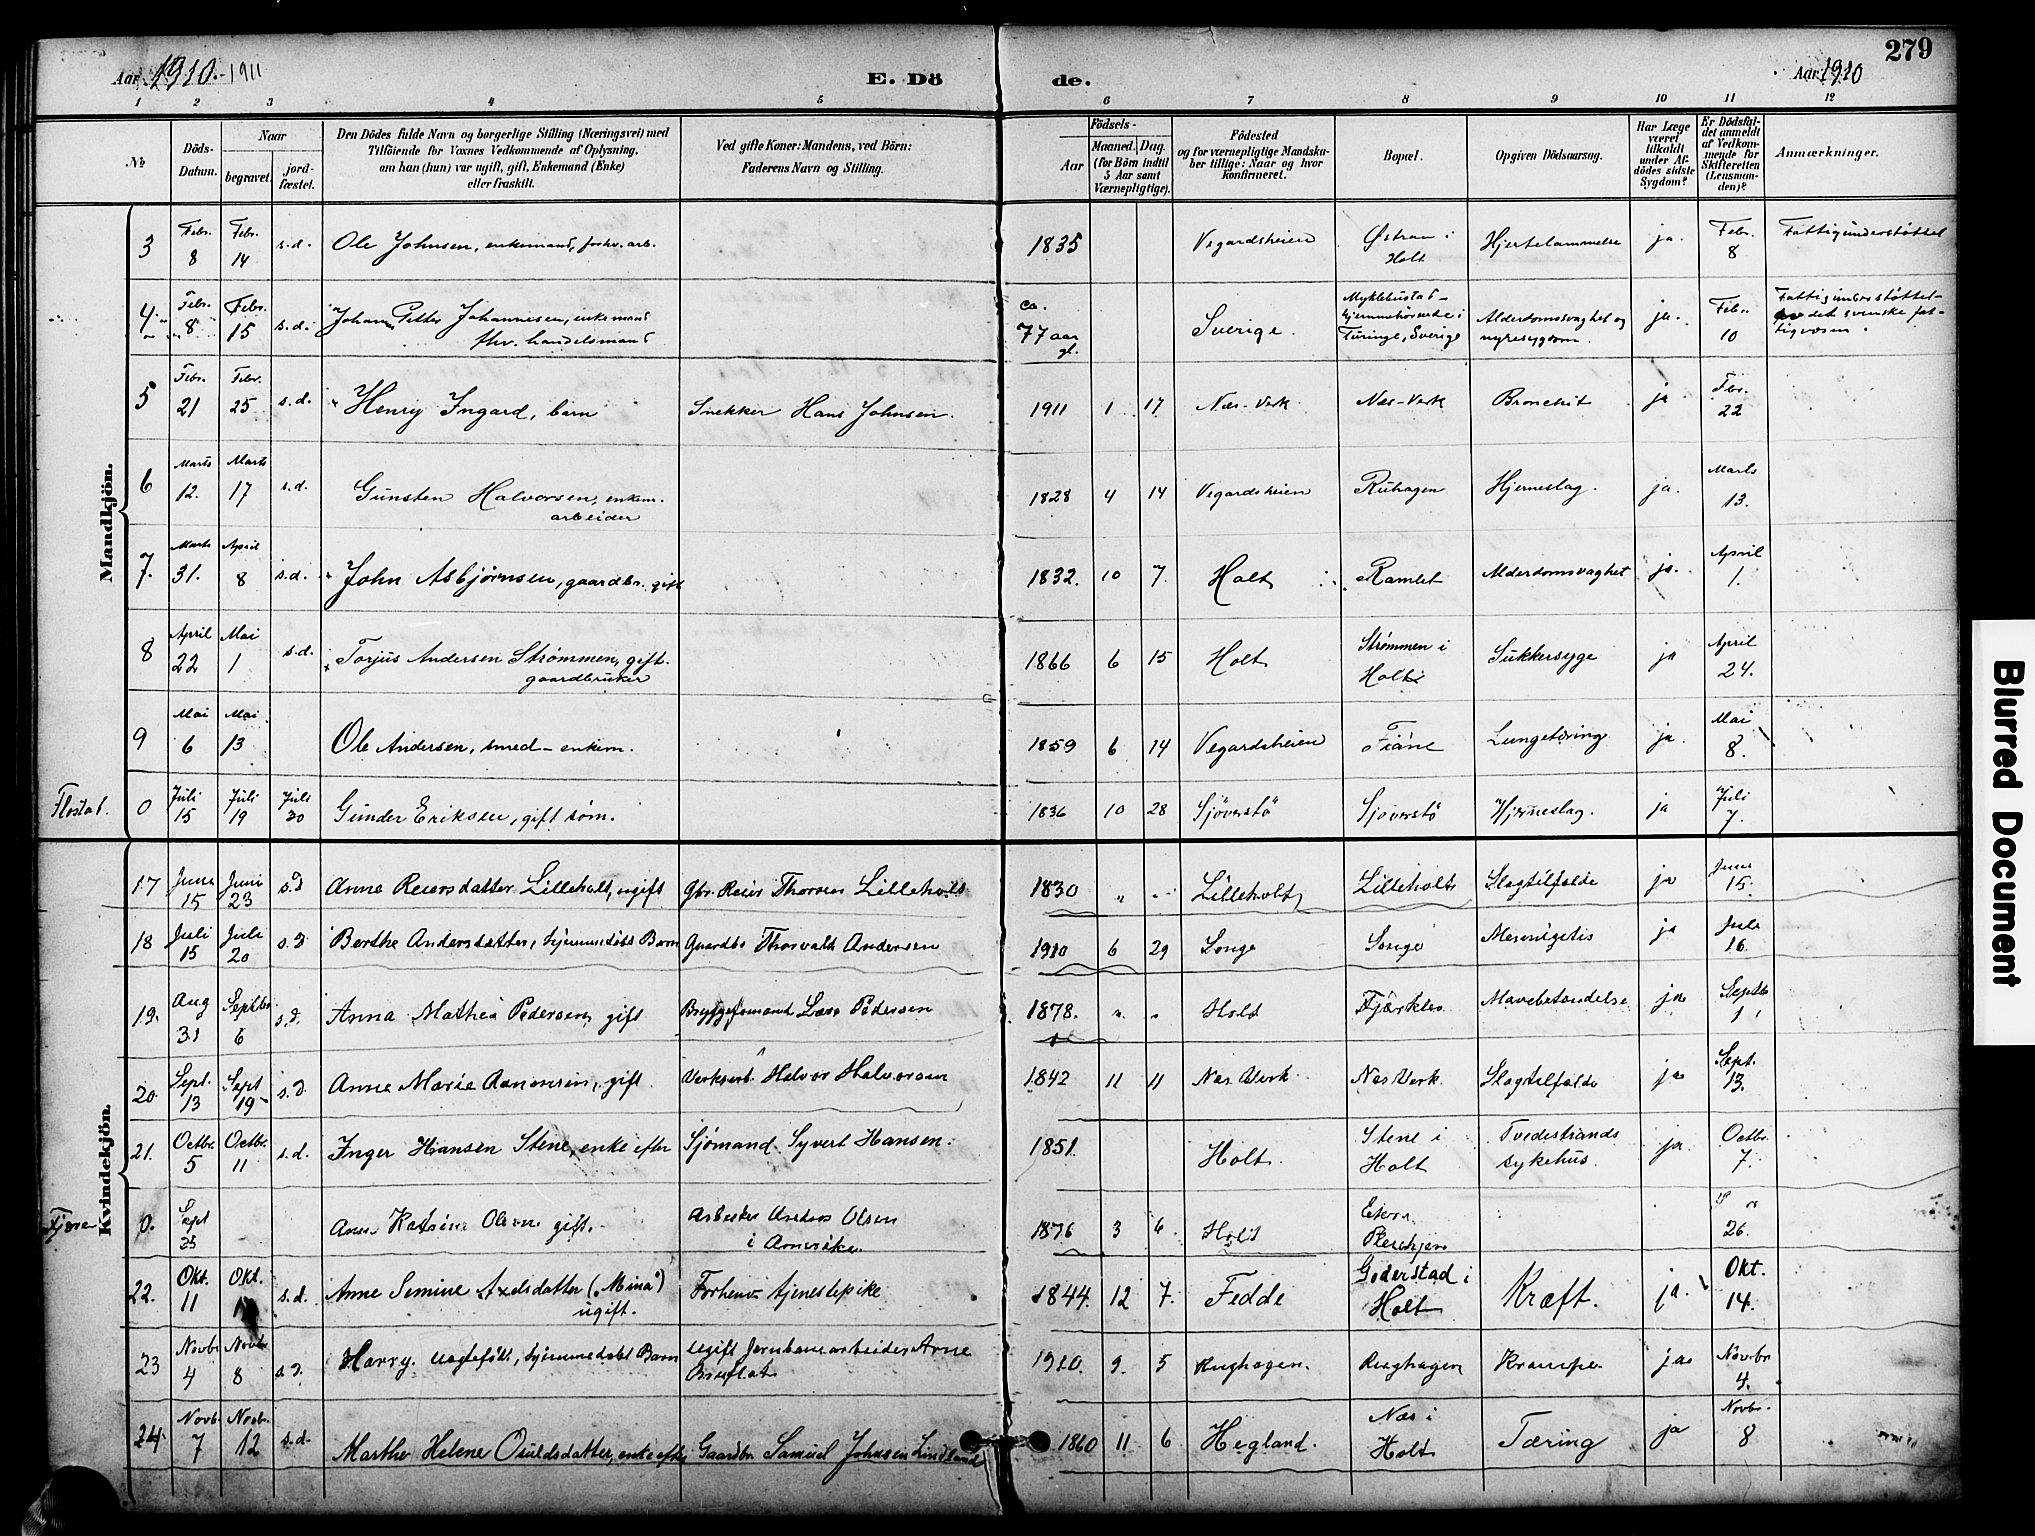 279
Aar 1910.-1911
E. Dö
de.
Aar 1910
1 2 3 4 5 6 7 8 9 10 11 12
№
Döds-Datum.
Naar
begravet.
jord-fæstet.
Den Dödes fulde Navn og borgerlige Stilling (Næringsvei) med
Tilföiende for Voxnes Vedkommende af Oplysning,
om han (hun) var ugift, gift, Enkemand (Enke)
eller fraskilt.
Ved gifte Koner: Mandens, ved Börn:
Faderens Navn og Stilling.
Födsels-
Aar
Maaned. Dag.
(for Börn indtil
5 Aar samt
Værnepligtige).
Födested
og for værnepligtige Mandska-
ber tillige: Naar og hvor
konfirmeret.
Bopæl.
Opgiven Dödsaarsag.
Har Læge
været
tilkaldt
under Af-
dödes sidste
Sygdom?
Er Dödsfal-
det anmeldt
af Vedkom-
mende for
Skifteretten
(Lensman-
den)?
Anmærkninger.
Mandkjön.
3 Febr. 8 Febr. 14 s.d. Ole Johnsen, enkemand, forhv. arb. 1835 Vegardsheien Østran i Holt Hjertelammelse ja. Febr. 8 Fattigunderstøttet
4 Febr. 8 Febr. 15 s.d. Johan Petter Johannesen, enkemand
fhv. handelsmand ca. 77 aar gl. Sverige. Myklebustad- hjemmehörende i Turinge, Sverige Alderdomssvaghet og nyresygdom ja. Febr. 10 Fattigunderstøttet- det svenske fat-
tigvæsen.
5 Febr. 21 Febr. 25 s.d. Henry Ingard, barn Snekker Hans Johnsen. 1911 1 17 Næs-Verk Næs-Verk Bronchit ja Fbr. 22
6 Marts 12. Marts 17 s.d. Gunsten Halvorsen, enkem.
arbeider 1828 4 14 Vegardsheien Ruhagen Hjerneslag. ja. Marts 13.
7. Marts 31. April 8 s.d. John Asbjørnsen, gaardbr. gift 1832. 10 7. Holt Ramlet Alderdomsvaghet ja. April 1.
8 April 22 Mai 1 s.d. Torjus Andersen Strømmen, gift.
gaardbruker 1866 6 15 Holt Strømmen i Holt Sukkersyge ja April 24.
9 Mai 6 Mai 13 Ole Andersen, smed - enkem. 1859 6 14 Vegardsheien Fiane Lungetæring ja. Mai 8.
Flostad. 0 Juli 15 Juli 19 Juli 20 Gunder Eriksen, gift söm. 1836 10 28 Sjöverstö Sjöverstö Hjerneslag. ja Juli 7.
Kvindekjön.
17 Juni 15 Juni 23 s.d Anne Reiersdatter Lilleholt, ugift Gbr. Reier Thorsen Lilleholt 1830 " " Lilleholt Lilleholt Slagtilfælde ja Juni 15.
18 Juli 15 Juli 20 s.d Berthe Andersdatter, hjemmedöbt Barn Gaardbr Thorvald Andersen 1910 6 29 Songe Songe ja Juli 16.
19. Aug 31 Septbr 6 s.d. Anna Mathea Pedersen, gift Lars Pedersen 1878. " " Holt Mavebetændelse ja Septbr 1
20. Sept. 13 Sept 19 s.d. Anne Marie Aanonsen, gift Verksarb. Halvor Halvorsen 1842 11 11 Næs Verk Næs Verk. Slagtilfælde ja Sept. 13.
21. Octbr. 5 Octbr. 11 s.d. Inger Hansen Stene, enke efter Sjömand Syvert Hansen. 1851. Holt. Stene i Holt Tvedestrands sykehus. ja Octbr. 7.
Fjære 0. Sept 25 Anne Katrine Olsen gift. Arbeider Olsen
i Amerika. 1876 3 6 Holt 26.
22. Okt. 11 Okt. s.d. Anne Semine Axelsdatter („Mina")
ugift. Forhenv. tjenestepike 1844. 12 7. Fedde Goderstad i Holt Kræft. ja. Okt. 14.
23 Novbr 4 Novbr 8 s.d. Harry. uægtefödt, hjemmedöbt Barn ugift Jernbanearbeider Arne
Bruflat 1910. 9. 5 Rughagen. Rughagen Krampe. ja Novbr 4.
24. Novb. 7 Novbr. 12 s.d. Marthe Helene Osuldsdatter, enke efter Gaardbr Samuel Johnsen Lindland 1860 11 6 Hegland. Næs i Holt Tæring ja Novbr. 8
Blurred Document